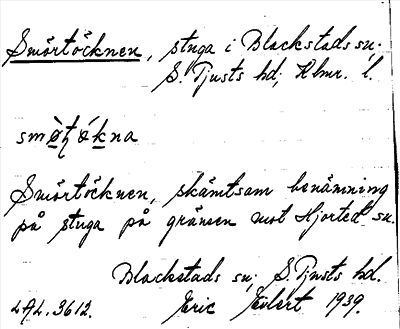 Smörtöcknen, stuga i Blackstads sn.
S. Tjusts hd, Klmr. l.
smø̀ʈǿkna
Smörtöcknen, skämtsam benämning
på stuga på gränsen mot Hjorted sn.
Blackstads sn. S. Tjusts hd.
LAL. 3612. Eric Eilert 1939.